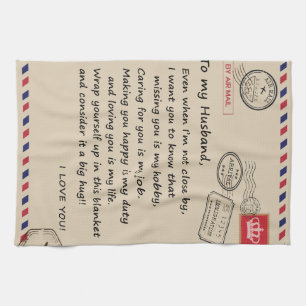 To my Husband,
Even when I'm not close by,
I want you to know that
missing you is my hobby,
Caring for you is my job,
Making you happy is my duty
and loving you is my life.
Wrap yourself up in this blanket
and consider it a big hug!!
I LOVE YOU!
BY AIR MAIL
AIR MAIL